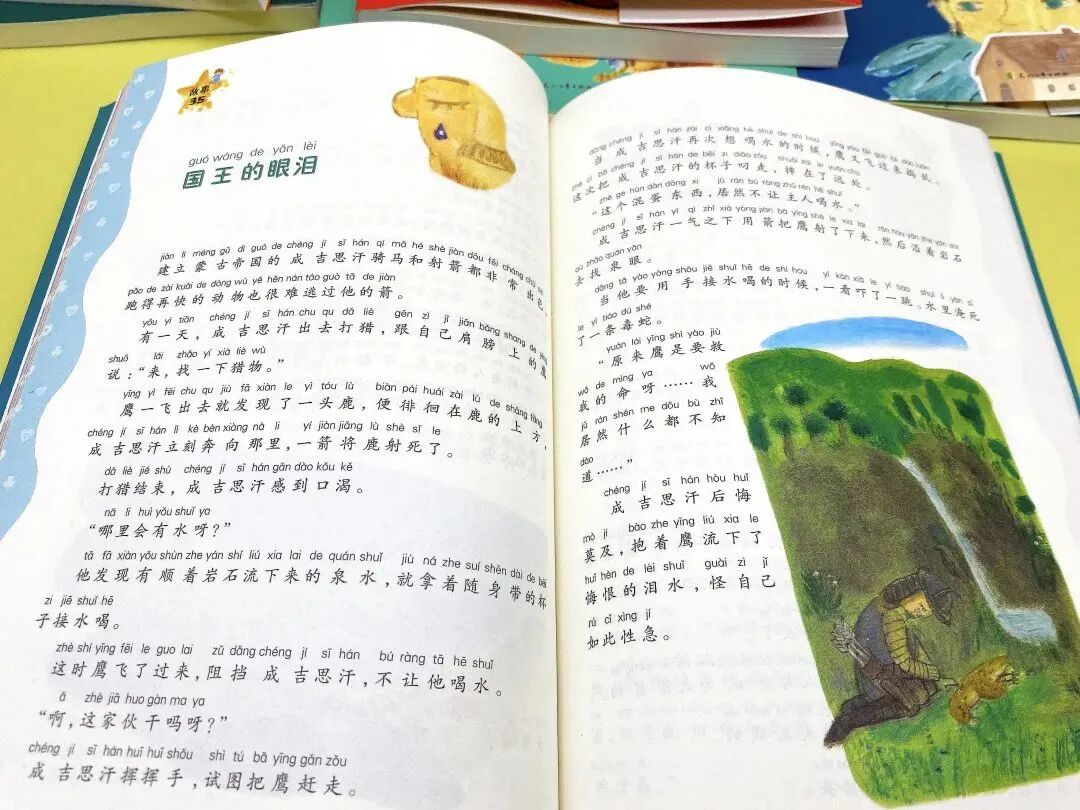 故事
35
guó wáng de yǎn lèi
国王的眼泪
jiàn lì měng gǔ dì guó de chéng jí sī hán qí mǎ hé shè jiàn dōu fēi cháng chū sè
建立蒙古帝国的成吉思汗骑马和射箭都非常出色。
pǎo de zài kuài de dòng wù yě hěn nán táo guò tā de jiàn
跑得再快的动物也很难逃过他的箭。
yǒu yì tiān chéng jí sī hán chū qu dǎ liè gēn zì jǐ jiān bǎng shang de yīng
有一天，成吉思汗出去打猎，跟自己肩膀上的鹰
shuō lái zhǎo yí xià liè wù
说：“来，找一下猎物。”
yīng yì fēi chu qu jiù fā xiàn le yì tóu lù biàn pái huái zài lù de shàng fāng
鹰一飞出去就发现了一头鹿，便徘徊在鹿的上方，
chéng jí sī hán lì kè bèn xiàng nà li yí jiàn jiāng lù shè sǐ le
成吉思汗立刻奔向那里，一箭将鹿射死了。
dǎ liè jié shù chéng jí sī hán gǎn dào kǒu kě
打猎结束，成吉思汗感到口渴。
nǎ li huì yǒu shuǐ ya
“哪里会有水呀？”
tā fā xiàn yǒu shùn zhe yán shí liú xia lai de quán shuǐ jiù ná zhe suí shēn dài de bēi
他发现有顺着岩石流下来的泉水，就拿着随身带的杯
zi jiē shuǐ hē
子接水喝。
zhè shí yīng fēi le guo lai zǔ dǎng chéng jí sī hán bú ràng tā hē shuǐ
这时鹰飞了过来，阻挡成吉思汗，不让他喝水。
ā zhè jiā huo gàn ma ya
“啊，这家伙干吗呀？”
chéng jí sī hán huī huī shǒu shì tú bǎ yīng gǎn zǒu
成吉思汗挥挥手，试图把鹰赶走。
dāng chéng jí sī hán zài cì xiǎng hē shuǐ de shí hou yīng yòu fēi guo lai dǎo luàn
当成吉思汗再次想喝水的时候，鹰又飞过来捣乱，
zhè cì bǎ chéng jí sī hán de bēi zi diāo zǒu shuāi zài le yuǎn chù
这次把成吉思汗的杯子叼走，摔在了远处。
zhè ge hún dàn dōng xi jū rán bú ràng zhǔ rén hē shuǐ
“这个混蛋东西，居然不让主人喝水。”
chéng jí sī hán yí qì zhī xià yòng jiàn bǎ yīng shè le xia lai rán hòu yán zhe yán shí
成吉思汗一气之下用箭把鹰射了下来，然后沿着岩石
qù zhǎo quán yǎn
去找泉眼。
dāng tā yào yòng shǒu jiē shuǐ hē de shí hou yí kàn xià le yí tiào shuǐ li yān sǐ
当他要用手接水喝的时候，一看吓了一跳。水里淹死
le yì tiáo dú shé
了一条毒蛇。
yuán lái yīng shì yào jiù
“原来鹰是要救
wǒ de mìng ya wǒ
我的命呀……我
jū rán shén me dōu bù zhī
居然什么都不知
dào
道……”
chéng jí sī hán hòu huǐ
成吉思汗后悔
mò jí bào zhe yīng liú xia le
莫及，抱着鹰流下了
huǐ hèn de lèi shuǐ guài zì jǐ
悔恨的泪水，怪自己
rú cǐ xìng jí
如此性急。